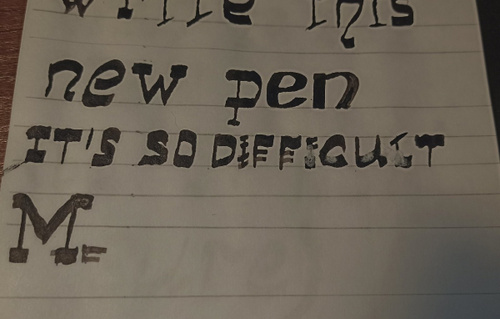 write this
new pen
IT'S SO DIFFICULT
ME